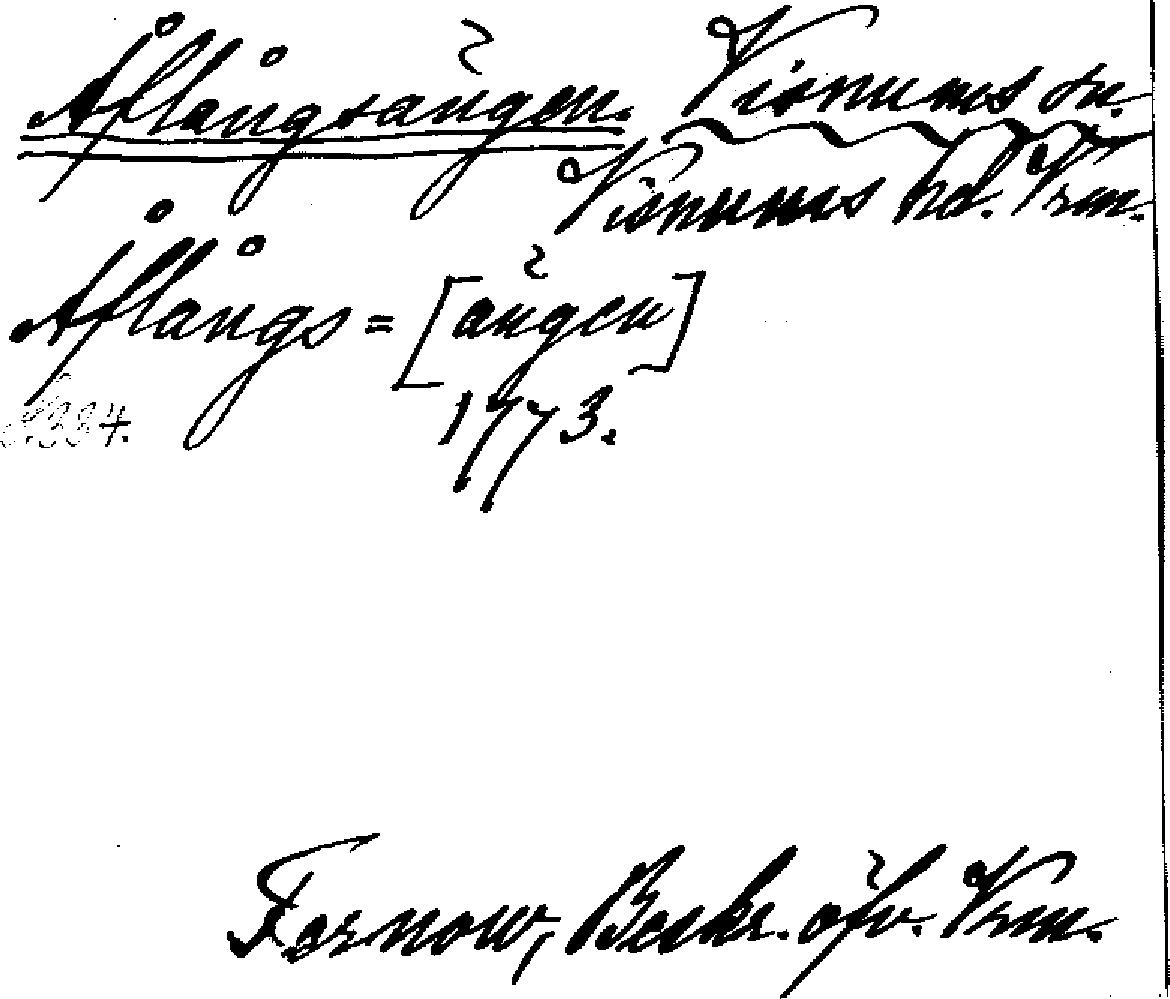 Åflångsängen. Visnums sn.
Visnums hd. Vrm.
Åflångs=[ängen]
s. 334. 1773.
Fernow, Beskr. öfv. Vrm.